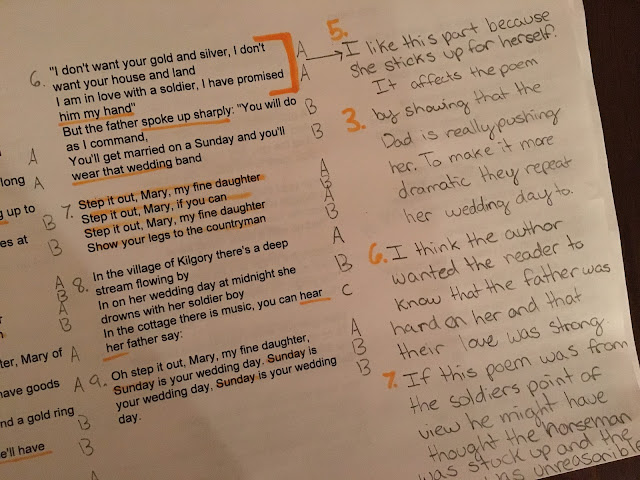 6. "I don't want your gold and silver, I don't A
want your house and land
I am in love with a soldier, I have promised A
him my hand"
But the father spoke up sharply: "You will do B
as I command,
You'll get married on a Sunday and you'll B
wear that wedding band
7. Step it out, Mary, my fine daughter A
Step it out, Mary, if you can B
Step it out, Mary, my fine daughter A
Show your legs to the countryman B
8. In the village of Kilgory there's a deep A
stream flowing by
In on her wedding day at midnight she B
drowns with her soldier boy
In the cottage there is music, you can hear C
her father say:
9. Oh step it out, Mary, my fine daughter, A
Sunday is your wedding day, Sunday is B
your wedding day, Sunday is your wedding B
day.
A
long A
g up to B
es at B
A
B
A
B
ter, Mary of A
have goods A
nd a gold ring B
e'll have B
A
5. I like this part because
she sticks up for herself.
It affects the poem
3. by showing that the
Dad is really pushing
her. To make it more
dramatic they repeat
her wedding day to.
6. I think the author
wanted the reader to
know that the father was
hard on her and that
their love was strong.
7. If this poem was from
the soldiers point of
view he might have
thought the horseman
was stuck up and the
was unreasonible